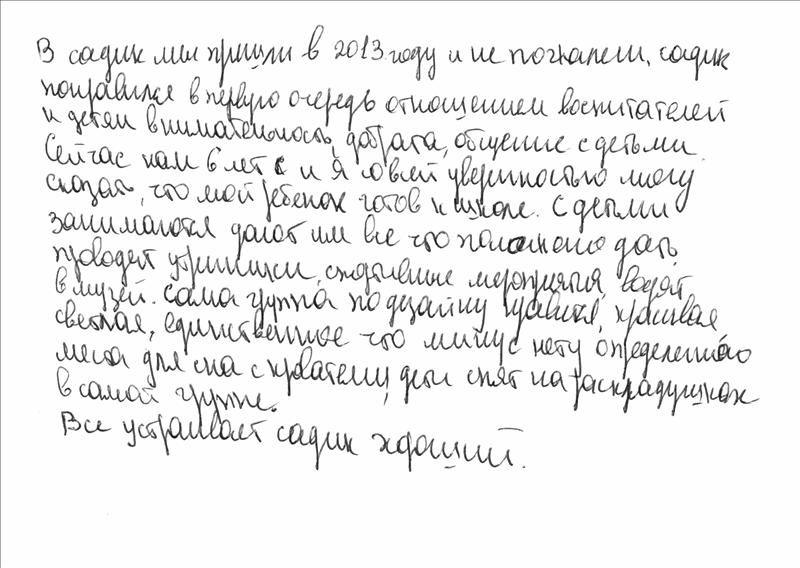 В садик мы пришли в 2013 году и не пожалели, садик
понравился в первую очередь отношением воспитателей
к детям внимательность, доброта, общение с детьми.
Сейчас нам 6 лет и я с всей уверенностью могу
сказать, что мой ребенок готов к школе. С детьми
занимаются дают им все что положено дать
проводят утренники, спортивные мероприятия, водят
в музей. Сама группа по дизайну нравится, красивая
светлая, единственное что минус нету определенного
места для сна с кроватями, дети спят на раскладушках
в самой группе.
Все устраивает садик хороший.